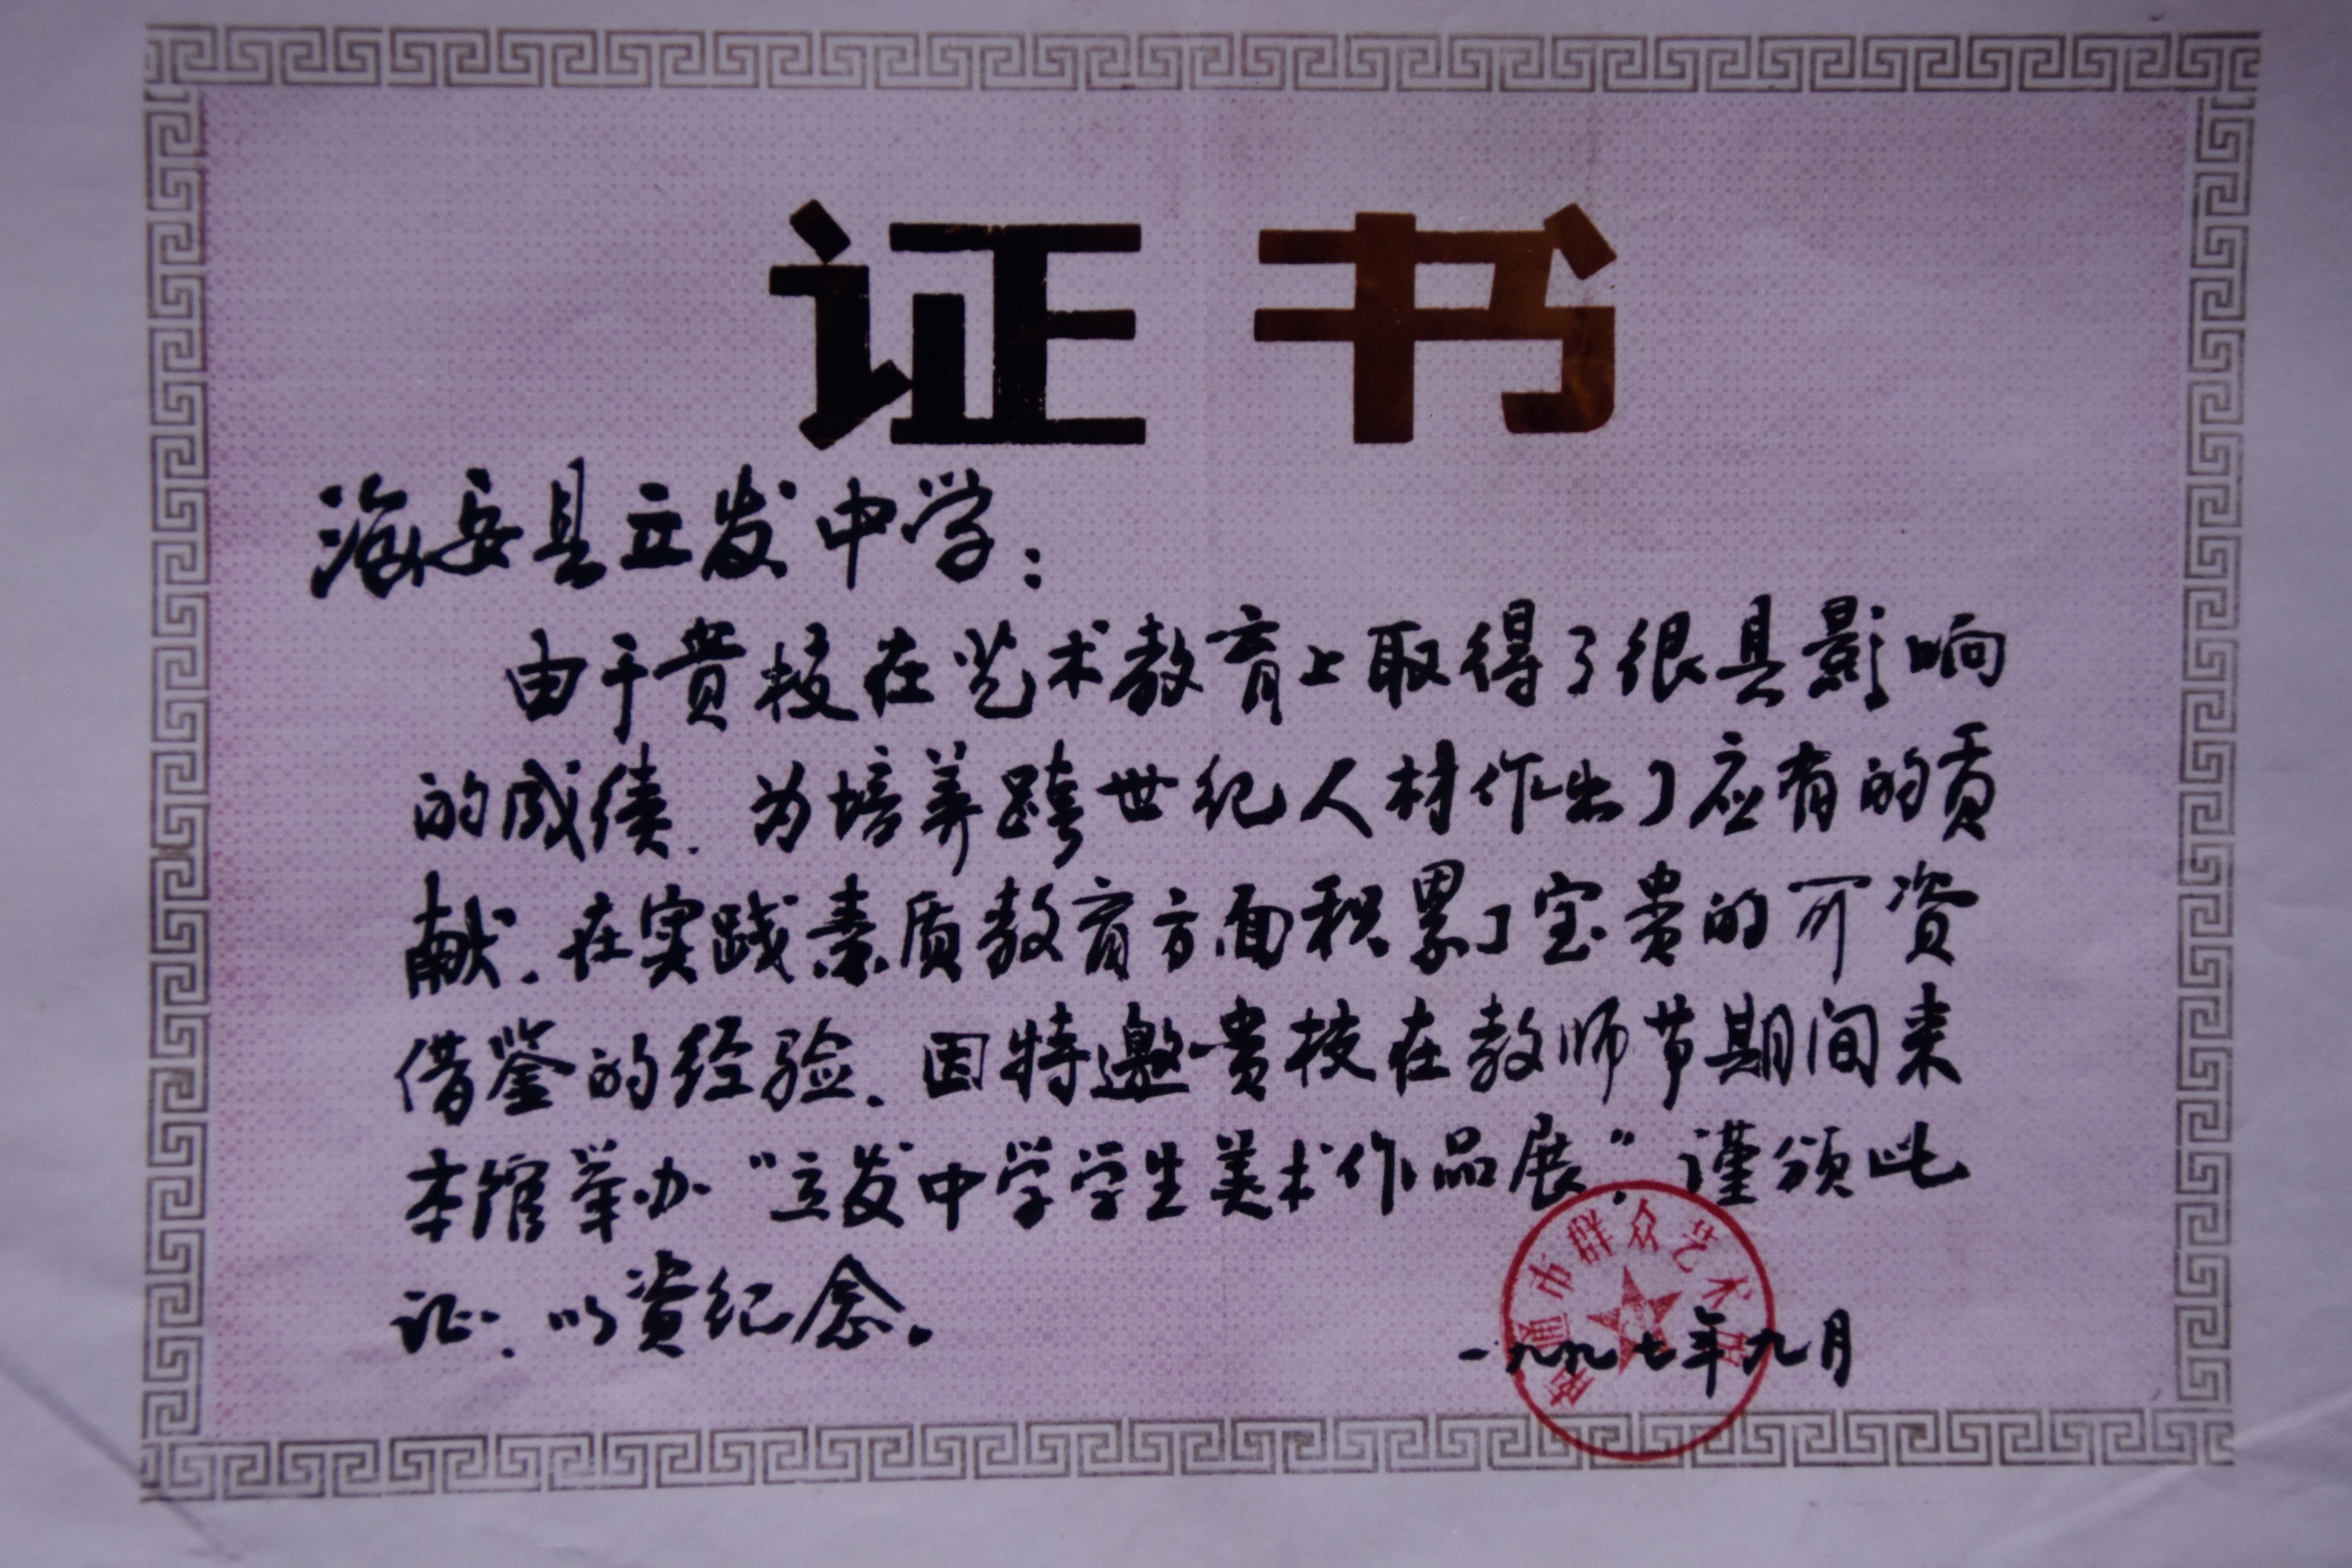 证书
海安县立发中学：
由于贵校在艺术教育上取得了很具影响
的成绩.为培养跨世纪人材作出了应有的贡
献.在实践素质教育方面积累了宝贵的可资
借鉴的经验.因特邀贵校在教师节期间来
本馆举办“立发中学学生美术作品展”.谨颁此
证.以资纪念。
南通市群众艺术馆
一九九七年九月